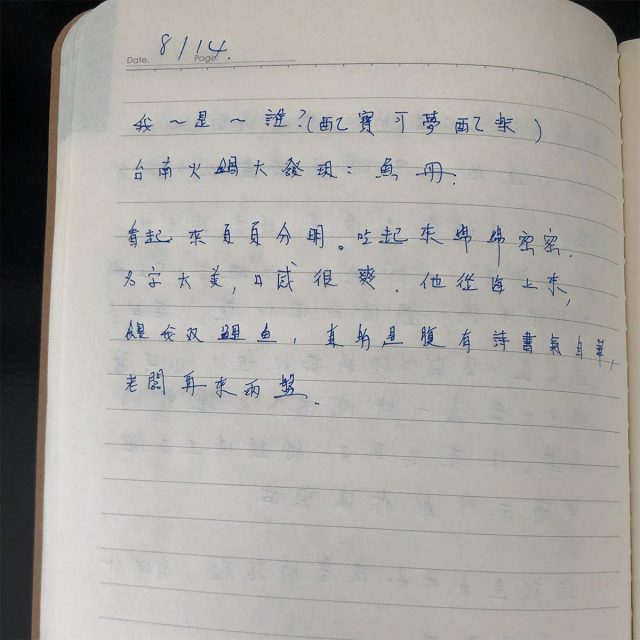 8/14.
Date. Page.
我～是～誰?(配寶可夢配樂)
台南火鍋大發現：魚冊.
看起來頁頁分明。吃起來綿綿密密.
名字太美,口感很爽.他從海上來,
遺我双鯉魚,真的是腹有詩書氣自華,
老闆再來兩盤.